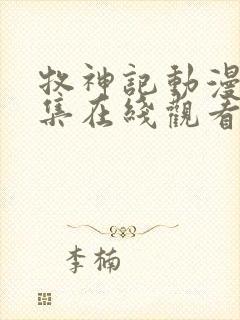 牧神記動漫
集在綫觀看
李楠